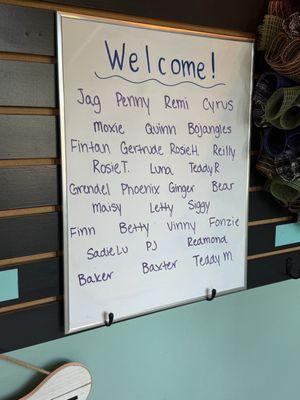 Welcome!
Jag Penny Remi Cyrus
moxie Quinn Bojangles
Fintan Gertrude Rosie H. Reilly
Rosie T. Luna Teddy R
Grendel Phoenix Ginger Bear
maisy Letty Siggy
Finn Betty Vinny Fonzie
Sadie Lu PJ Redmond
Baker Baxter Teddy M.